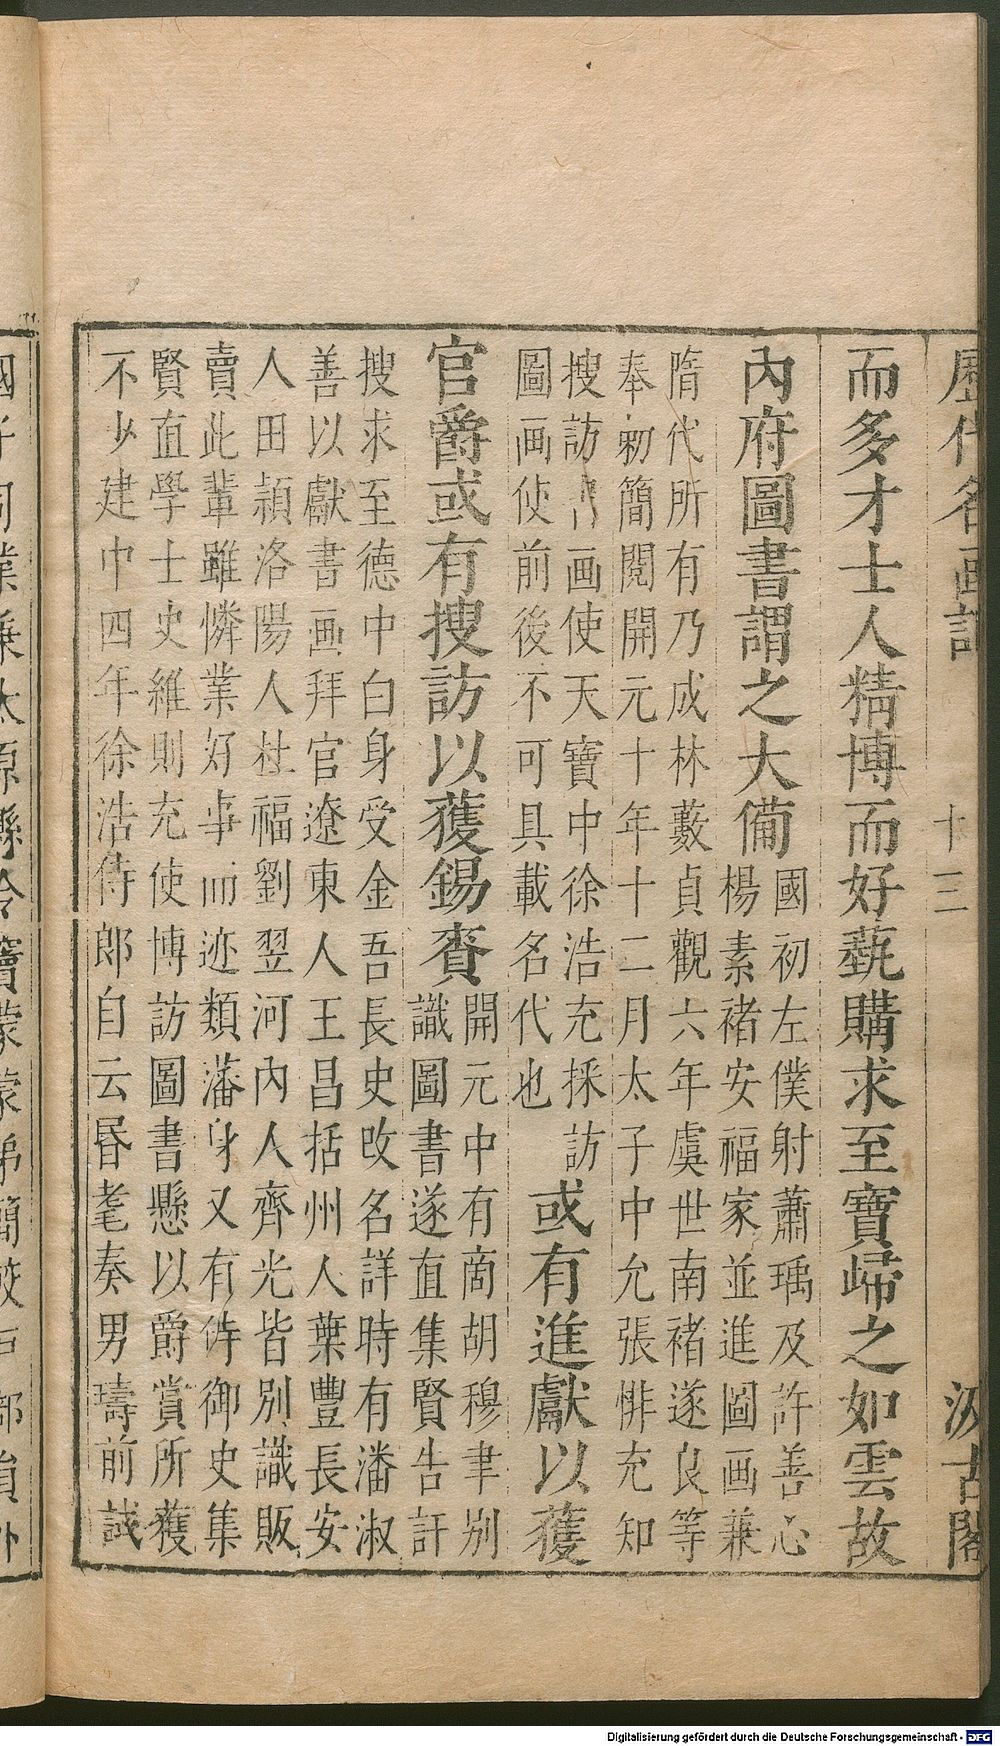 歷代名画記 十三 汲古閣
而多才士人精博而好藝購求至寶歸之如雲故
內府圖書謂之大備
國初左僕射蕭瑀及許善心
楊素褚安福家並進圖画兼
隋代所有乃成林藪貞觀六年虞世南褚遂良等
奉勑簡閱開元十年十二月太子中允張悱充知
搜訪書画使天寶中徐浩充採訪
圖画使前後不可具載名代也
或有進獻以獲
官爵或有搜訪以獲錫賚
開元中有商胡穆聿別
識圖書遂直集賢告訐
搜求至德中白身受金吾長史改名詳時有潘淑
善以獻書画拜官遼東人王昌括州人葉豐長安
人田穎洛陽人杜福劉翌河內人齊光皆別識販
賣此輩雖憐業好事而迹類藩身又有侍御史集
賢直學士史維則充使博訪圖書懸以爵賞所獲
不少建中四年徐浩侍郎自云昬耄奏男璹前試
國子司業兼太原縣令竇蒙蒙弟簡較戸部員外
Digitalisierung gefördert durch die Deutsche Forschungsgemeinschaft - DFG